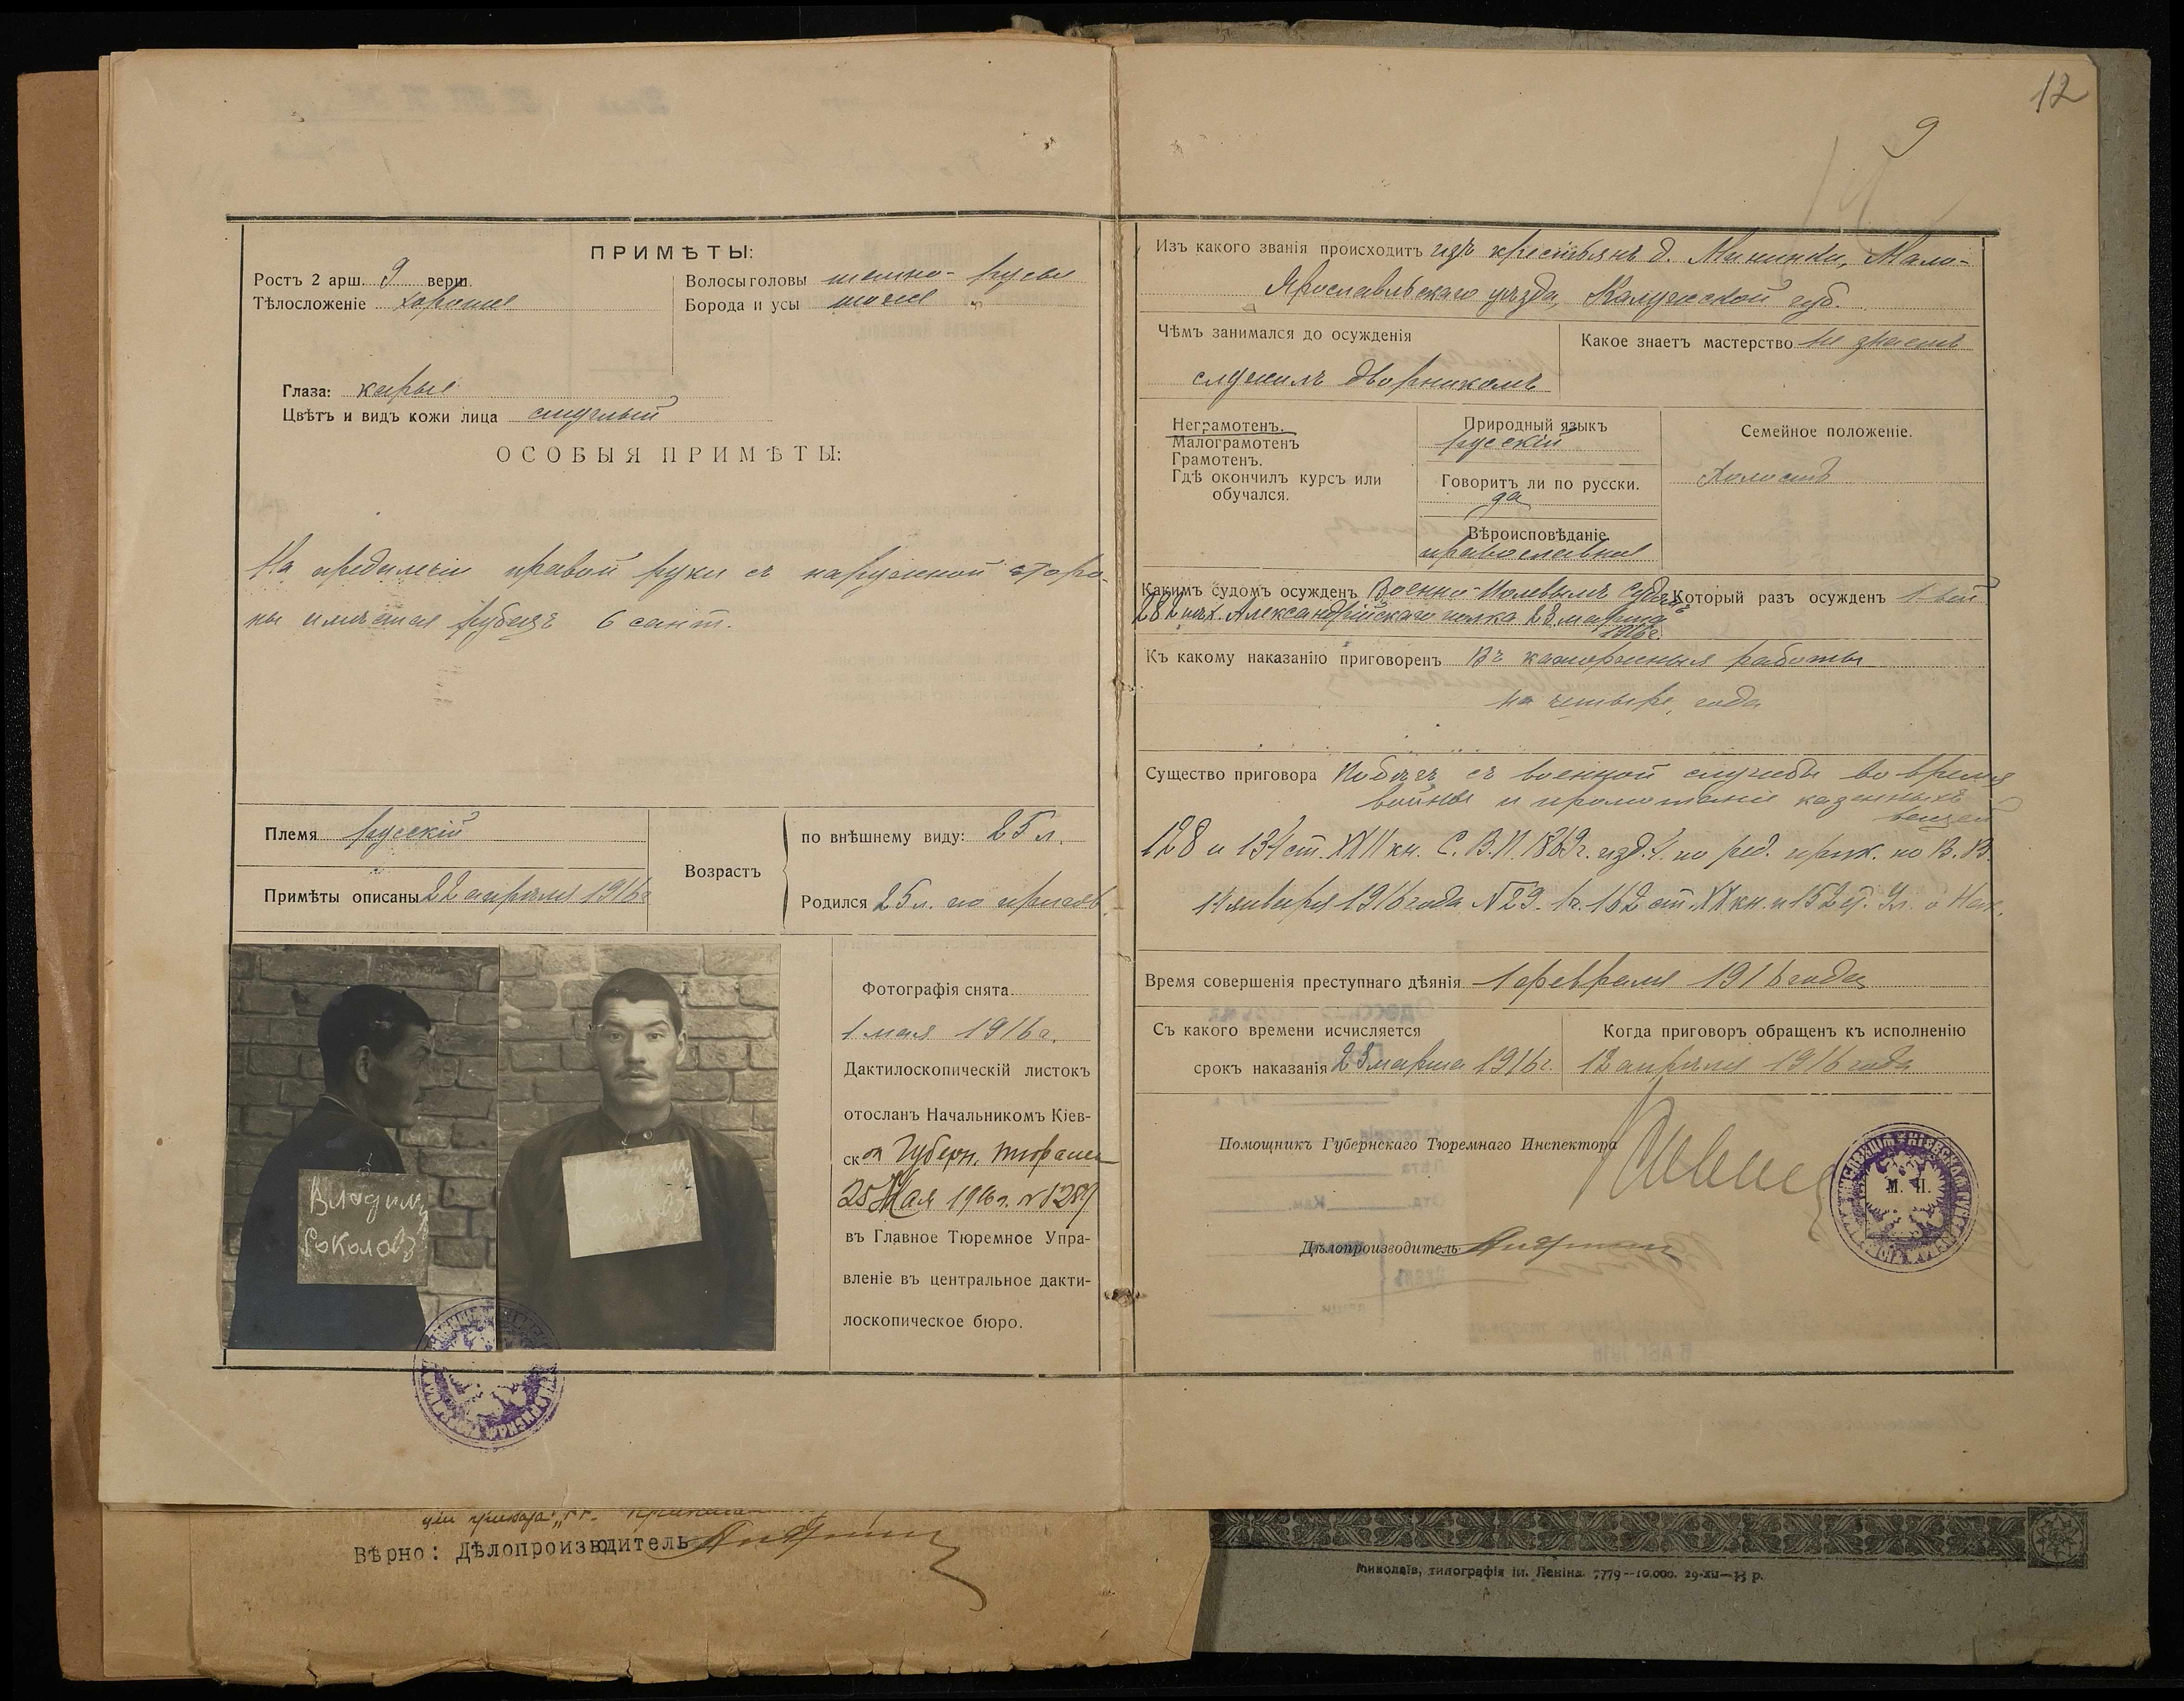 12
9
ПРИМѢТЫ:
Ростъ 2 арш. 9 верш.
Тѣлосложеніе хорошее
Волосы головы темно-русые
Борода и усы тоже
Глаза: карые
Цвѣтъ и видъ кожи лица смуглый
ОСОБЫЯ ПРИМѢТЫ:
На предплечіи правой руки съ наружной сторо-
ны имѣется рубецъ 6 сант.
Племя русскій
Примѣты описаны 22 апрѣля 1916 г
Возрастъ
по внѣшнему виду: 25 л.
Родился 25 л. по
Фотографія снята
1 мая 1916 г.
Дактилоскопическій листокъ
отосланъ Начальникомъ Кіев-
ск ой Губерн. тюрьмы
25 Мая 1916 г. №
въ Главное Тюремное Упра-
вленіе въ центральное дакти-
лоскопическое бюро.
Владимъ
Соколовъ
Изъ какого званія происходитъ изъ крестьянъ д. Мало-
Ярославльскаго уѣзда, Калужской губ.
Чѣмъ занимался до осужденія
служилъ дворникомъ
Какое знаетъ мастерство не знаетъ
Неграмотенъ.
Малограмотенъ
Грамотенъ.
Гдѣ окончилъ курсъ или
обучался.
Природный языкъ
русскій
Говоритъ ли по русски.
да
Вѣроисповѣданіе
православное
Семейное положеніе.
Холостъ
Какимъ судомъ осужденъ Военно-Полевымъ Судомъ
282 пѣх. Александрійскаго полка 28 марта
1916 г.
Который разъ осужденъ 1-ый
Къ какому наказанію приговоренъ Въ каторжныя работы
на четыре года
Существо приговора Побѣгъ съ военной службы во время
войны и промотаніе казенныхъ
вещей
128 и 134 ст. XXII кн. С. В. П. 1869 г. изд. 4. по ред. прик. по В. В.
14 января 1916 года № 29. 1 ч. 162 ст. XX кн. и 152 ст. Ул. о Нак.
Время совершенія преступнаго дѣянія 1 февраля 1916 года
Съ какого времени исчисляется
срокъ наказанія 28 марта 1916 г.
Когда приговоръ обращенъ къ исполненію
12 апрѣля 1916 года
Помощникъ Губернскаго Тюремнаго Инспектора
М. П.
Дѣлопроизводитель
Вѣрно: Дѣлопроизводитель
Миколаїв, типографія ім. Леніна. 7779—10.000. 29-XII—